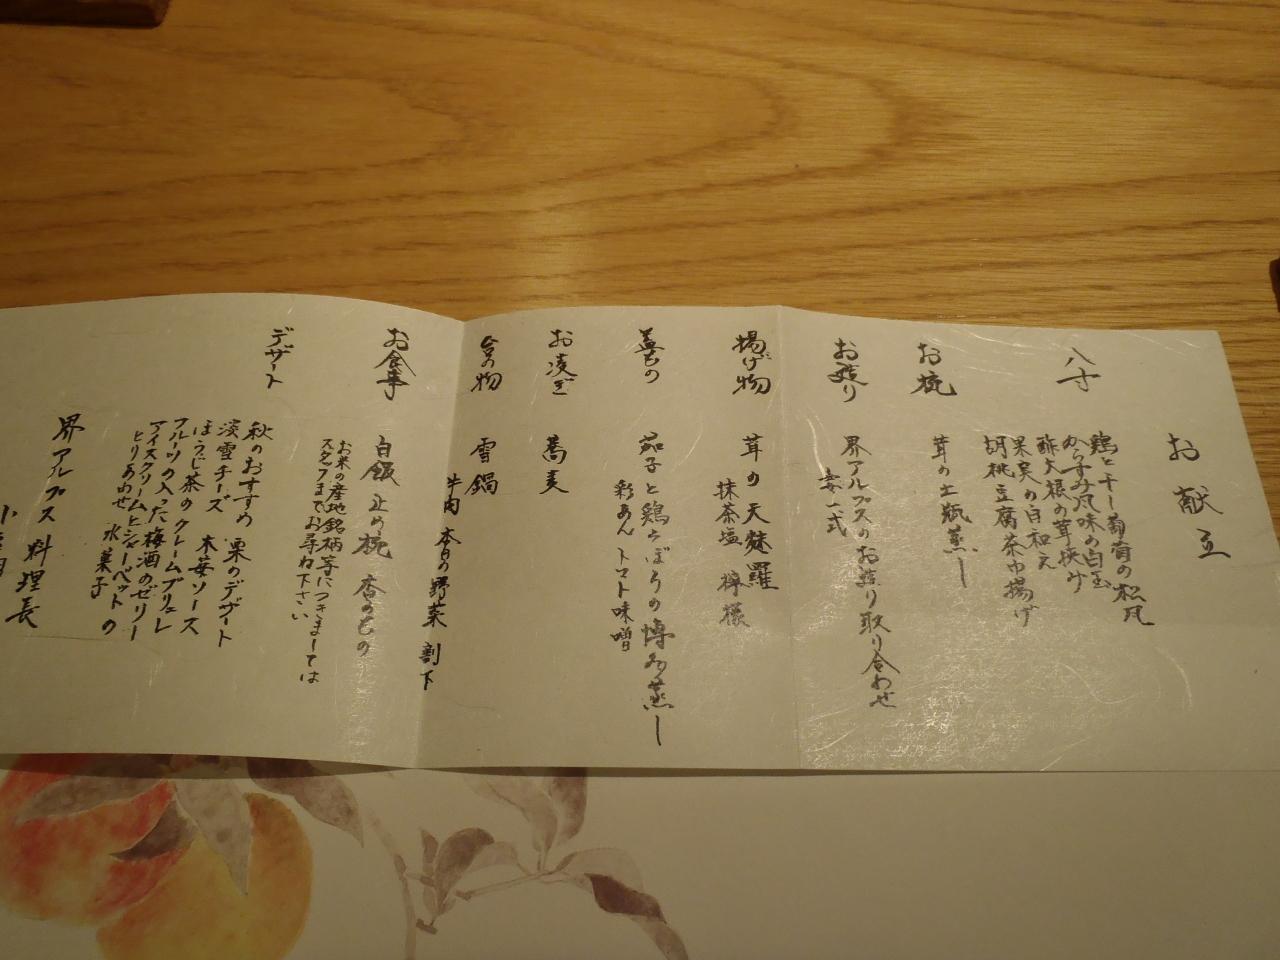 お献立
八寸
鶏と干し葡萄の松風
からすみ風味の白玉
酢大根の茸挟み
果実の白和え
胡桃豆腐茶巾揚げ
お椀
茸の土瓶蒸し
お造り
界アルプスのお造り取り合わせ
妻一式
揚げ物
茸の天麩羅
抹茶塩 檸檬
蓋もの
茄子と鶏そぼろの博多蒸し
彩あん トマト味噌
お凌ぎ
蕎麦
台の物
雪鍋
牛肉 本日の野菜 割下
お食事
白飯 止め椀 香のもの
お米の産地銘柄等につきましては
スタッフまでお尋ね下さい
デザート
秋のおすすめ 栗のデザート
淡雪チーズ 木苺ソース
ほうじ茶のクレームブリュレ
フルーツの入った梅酒のゼリー
アイスクリームとシャーベットの
とりあわせ 水菓子
界アルプス 料理長